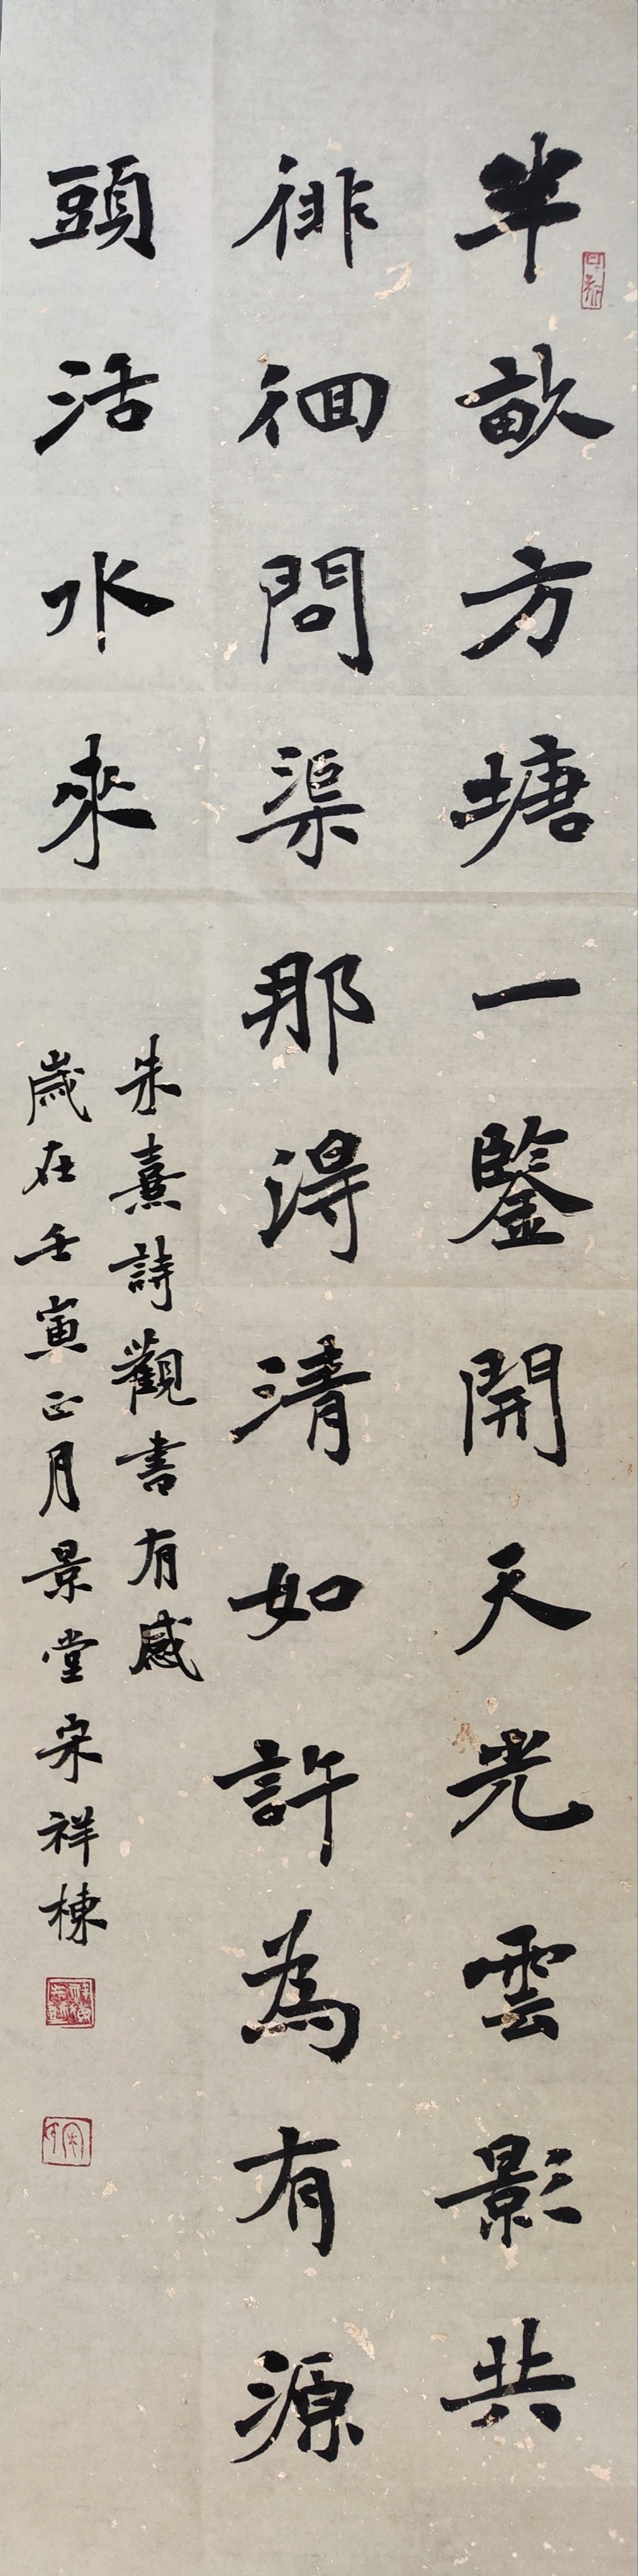 半畝方塘一鑒開天光雲影共
徘徊問渠那得清如許為有源
頭活水來
朱熹詩觀書有感
歲在壬寅正月景堂宋祥棟